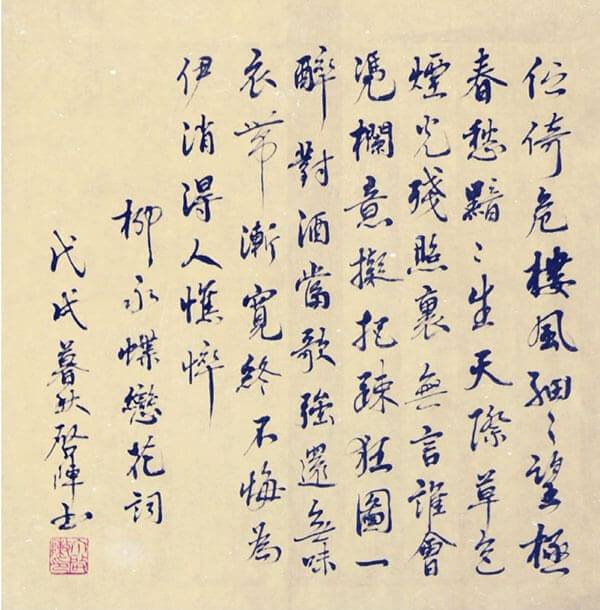 伫倚危樓風細々望極
春愁黯々生天際草色
煙光殘照裏無言誰會
凴欄意擬把疎狂圖一
醉對酒當歌強還無味
衣帶漸寬終不悔為
伊消得人憔悴
柳永蝶戀花詞
戊戌暮秋啓陣书